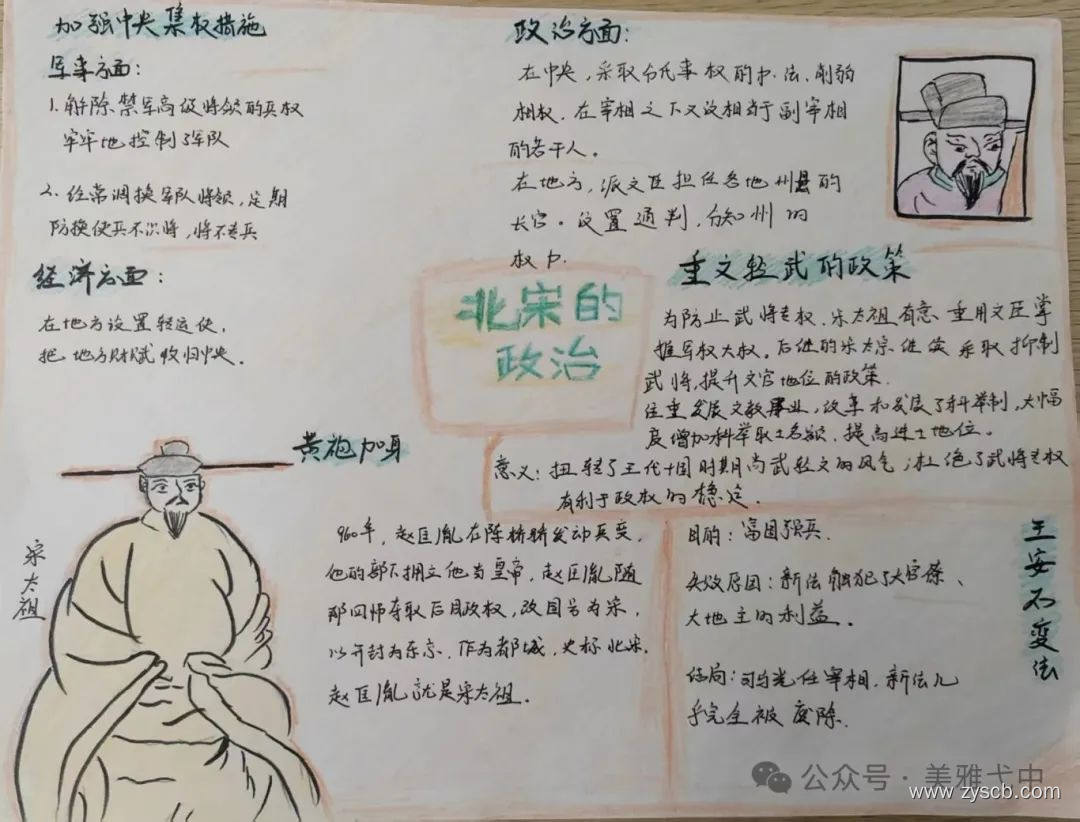 加强中央集权措施
军事方面：
1. 解除禁军高级将领的兵权
牢牢地控制了军队
2. 经常调换军队将领，定期
防换使兵不识将，将不专兵
经济方面：
在地方设置转运使，
把地方财赋收归中央。
政治方面：
在中央，采取分化事权的办法，削弱
相权，在宰相之下又设相当于副宰相
的若干人。
在地方，派文臣担任各地州县的
长官。设置通判，分知州的
权力．
北宋的
政治
重文轻武的政策
为防止武将专权，宋太祖有意重用文臣掌
握军权大权。后继的宋太宗继续采取抑制
武将，提升文官地位的政策．
注重发展文教事业，改革和发展了科举制，大幅
度增加科举取士名额，提高进士地位。
意义：扭转了五代十国时期尚武轻文的风气；杜绝了武将专权
有利于政权的稳定．
黄袍加身
960年，赵匡胤在陈桥驿发动兵变，
他的部下拥立他当皇帝，赵匡胤随
即回师夺取后周政权，改国号为宋，
以开封为东京，作为都城，史称北宋．
赵匡胤就是宋太祖．
宋太祖
王安石变法
目的：富国强兵．
失败原因：新法触犯了大官僚、
大地主的利益。
结局：司马光任宰相，新法几
乎完全被废除．
公众号·美雅弋中
www.zyscb.com